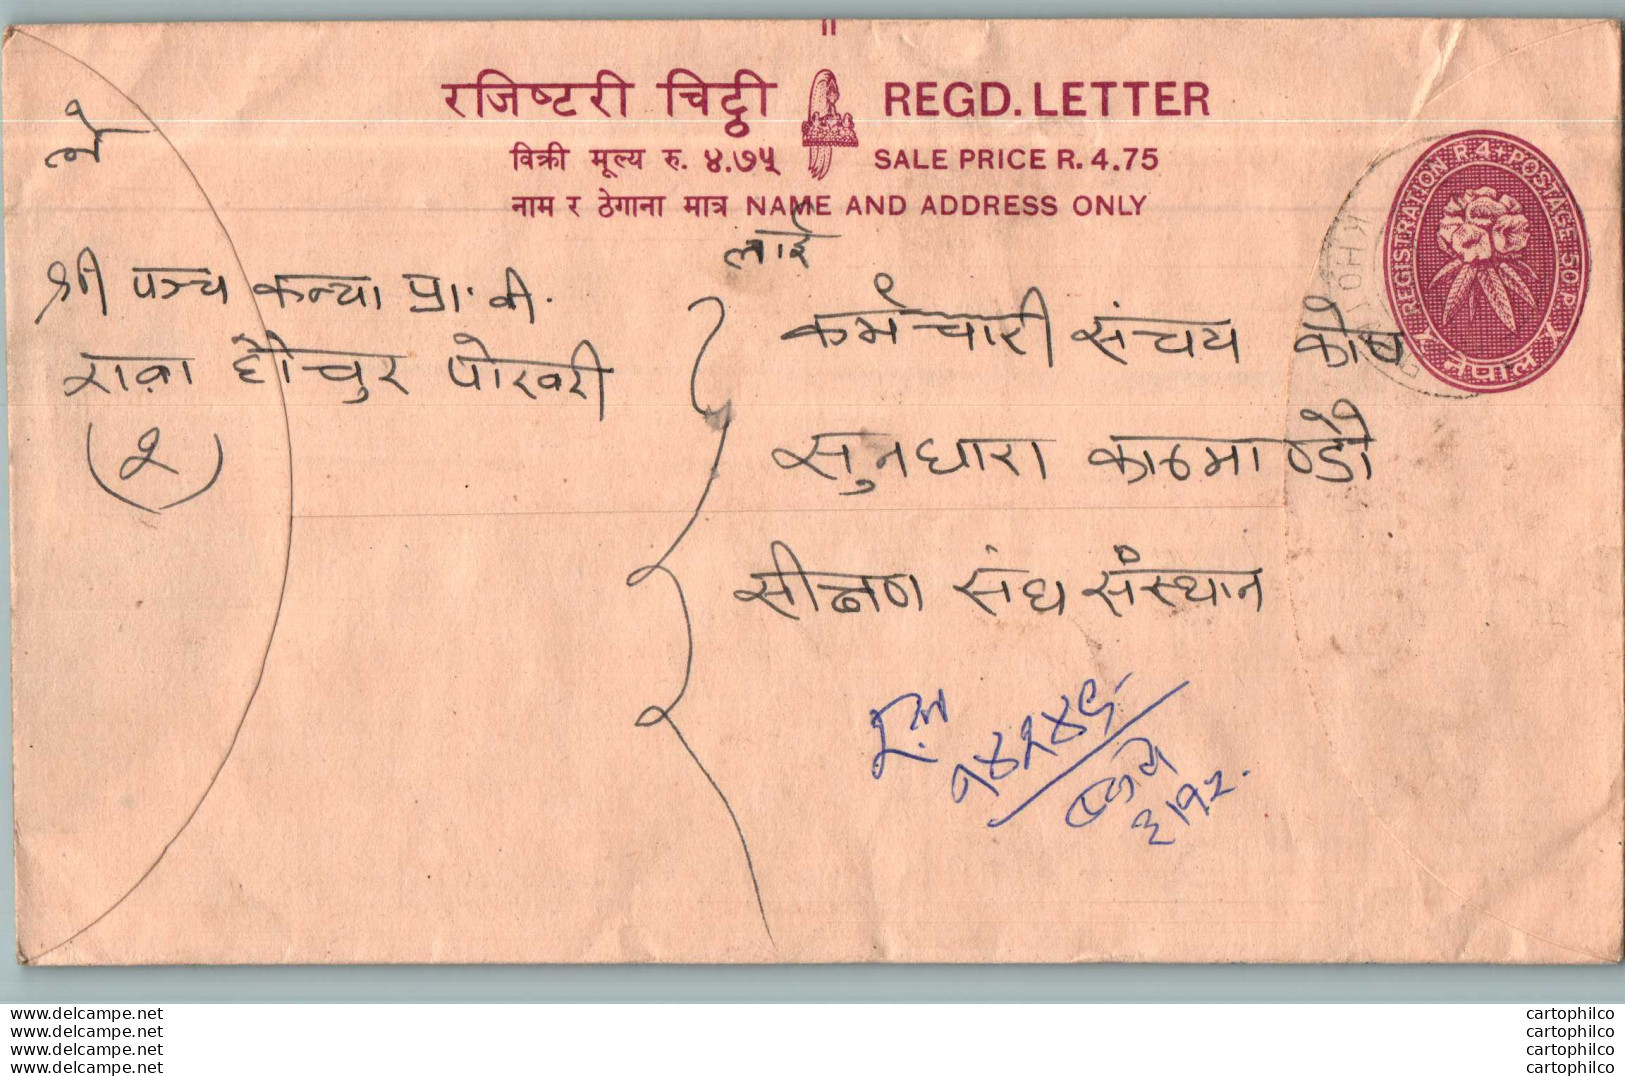 रजिष्टरी चिट्ठी REGD. LETTER
विक्री मूल्य रु. ४.७५ SALE PRICE R. 4.75
नाम र ठेगाना मात्र NAME AND ADDRESS ONLY
REGISTRATION R.4+POSTAGE 50 P.
नेपाल
KHOT
ले
श्री पञ्च कन्या प्रा. वी.
पोखरी
(२)
लाई
कर्मचारी संचय कोष
सुनधारा काठमाण्डौ
संघ संस्थान
३।१२
www.delcampe.net
www.delcampe.net
www.delcampe.net
www.delcampe.net
cartophilco
cartophilco
cartophilco
cartophilco